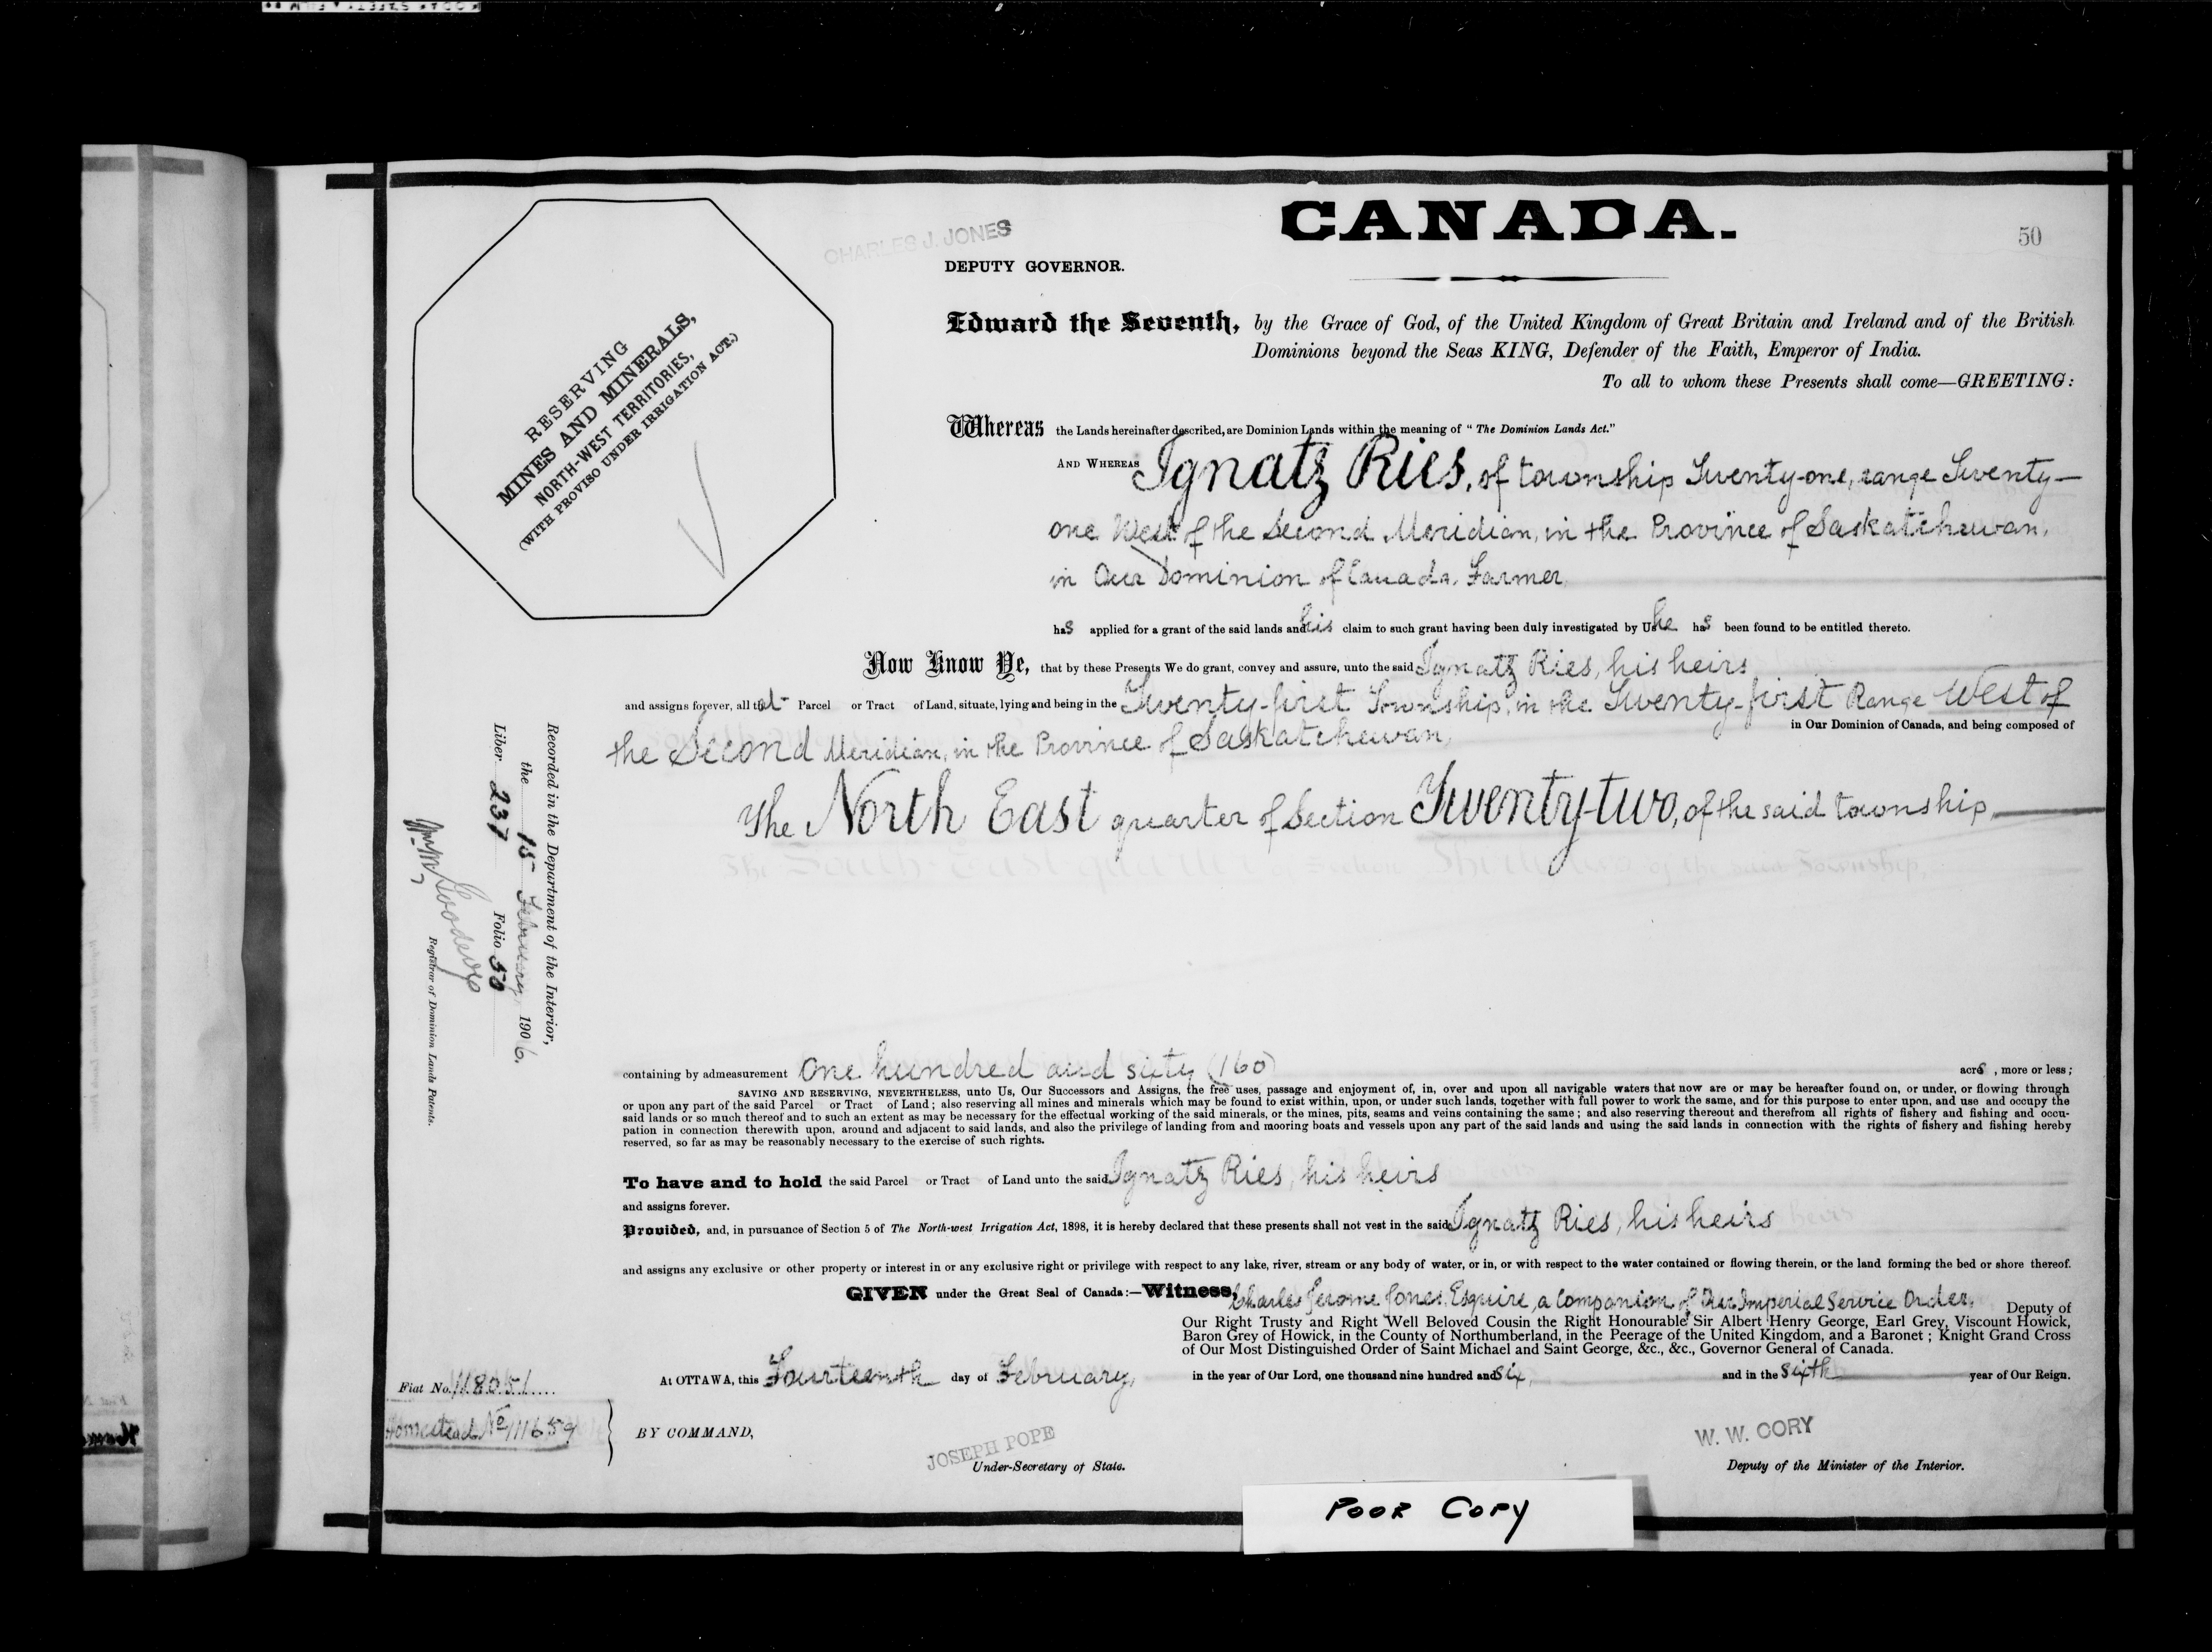 CANADA.
50
CHARLES J. JONES
DEPUTY GOVERNOR.
RESERVING
MINES AND MINERALS,
NORTH-WEST TERRITORIES,
(WITH PROVISO UNDER IRRIGATION ACT.)
Edward the Seventh, by the Grace of God, of the United Kingdom of Great Britain and Ireland and of the British
Dominions beyond the Seas KING, Defender of the Faith, Emperor of India.
To all to whom these Presents shall come—GREETING:
Whereas the Lands hereinafter described, are Dominion Lands within the meaning of "The Dominion Lands Act."
AND WHEREAS Ignatz Ries, of township Twenty-one, range Twenty-
one West of the Second Meridian, in the Province of Saskatchewan,
in Our Dominion of Canada, Farmer,
has applied for a grant of the said lands and his claim to such grant having been duly investigated by Us he has been found to be entitled thereto.
Now Know Ye, that by these Presents We do grant, convey and assure, unto the said Ignatz Ries, his heirs
and assigns forever, all that Parcel or Tract of Land, situate, lying and being in the Twenty-first Township, in the Twenty-first Range West of
the Second Meridian, in the Province of Saskatchewan, in Our Dominion of Canada, and being composed of
The North East quarter of Section Twenty-two, of the said township,
containing by admeasurement One hundred and sixty (160) acres, more or less;
SAVING AND RESERVING, NEVERTHELESS, unto Us, Our Successors and Assigns, the free uses, passage and enjoyment of, in, over and upon all navigable waters that now are or may be hereafter found on, or under, or flowing through
or upon any part of the said Parcel or Tract of Land; also reserving all mines and minerals which may be found to exist within, upon, or under such lands, together with full power to work the same, and for this purpose to enter upon, and use and occupy the
said lands or so much thereof and to such an extent as may be necessary for the effectual working of the said minerals, or the mines, pits, seams and veins containing the same; and also reserving thereout and therefrom all rights of fishery and fishing and occu-
pation in connection therewith upon, around and adjacent to said lands, and also the privilege of landing from and mooring boats and vessels upon any part of the said lands and using the said lands in connection with the rights of fishery and fishing hereby
reserved, so far as may be reasonably necessary to the exercise of such rights.
To have and to hold the said Parcel or Tract of Land unto the said Ignatz Ries, his heirs
and assigns forever.
Provided, and, in pursuance of Section 5 of The North-west Irrigation Act, 1898, it is hereby declared that these presents shall not vest in the said Ignatz Ries, his heirs
and assigns any exclusive or other property or interest in or any exclusive right or privilege with respect to any lake, river, stream or any body of water, or in, or with respect to the water contained or flowing therein, or the land forming the bed or shore thereof.
GIVEN under the Great Seal of Canada:—Witness, Charles Jerome Jones, Esquire, a Companion of Our Imperial Service Order, Deputy of
Our Right Trusty and Right Well Beloved Cousin the Right Honourable Sir Albert Henry George, Earl Grey, Viscount Howick,
Baron Grey of Howick, in the County of Northumberland, in the Peerage of the United Kingdom, and a Baronet; Knight Grand Cross
of Our Most Distinguished Order of Saint Michael and Saint George, &c., &c., Governor General of Canada.
At OTTAWA, this Fourteenth day of February, in the year of Our Lord, one thousand nine hundred and six, and in the sixth year of Our Reign.
BY COMMAND,
JOSEPH POPE
Under-Secretary of State.
W. W. CORY
Deputy of the Minister of the Interior.
Recorded in the Department of the Interior,
the 15 February 1906.
Liber 237 Folio 50
Registrar of Dominion Lands Patents.
Fiat No. 118051
Homestead No 111659
POOR COPY